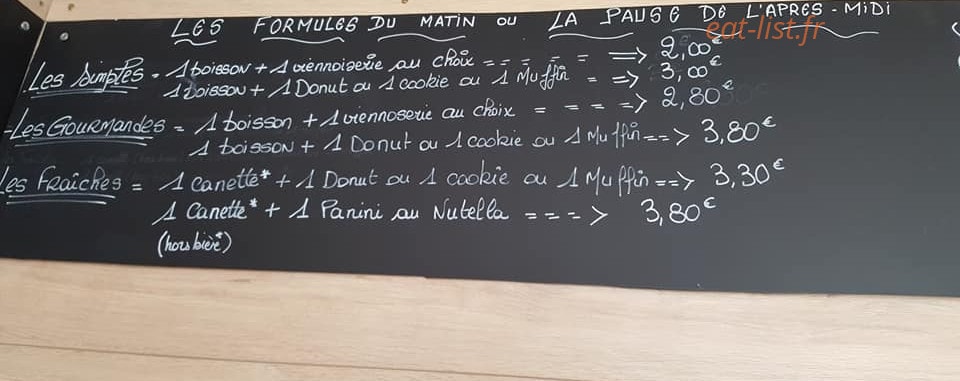 LES FORMULES DU MATIN OU LA PAUSE DE L'APRES-MIDI
eat-list.fr
Les Simples = 1 boisson + 1 viennoiserie au choix ===== => 2,00€
1 boisson + 1 Donut ou 1 cookie ou 1 Muffin = => 3,00€
-Les Gourmandes = 1 boisson + 1 viennoserie au choix = = = => 2,80€
1 boisson + 1 Donut ou 1 cookie ou 1 Muffin ==> 3,80€
Les Fraîches = 1 canette* + 1 Donut ou 1 cookie ou 1 Muffin ==> 3,30€
1 Canette* + 1 Panini au Nutella = = = > 3,80€
(hors bière*)